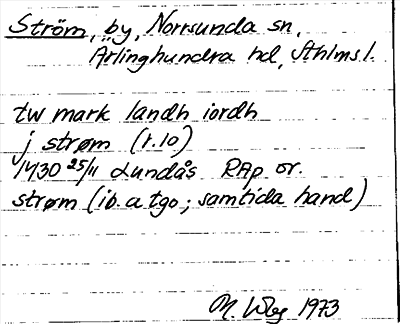 Ström, by, Norrsunda sn,
Ärlinghundra hd, Sthlms l.
tw mark landh iordh
j strøm (r. 10)
1430 25/11 Lundås RAp or.
strøm (ib. a tgo; samtida hand)
M. Wbg 1973